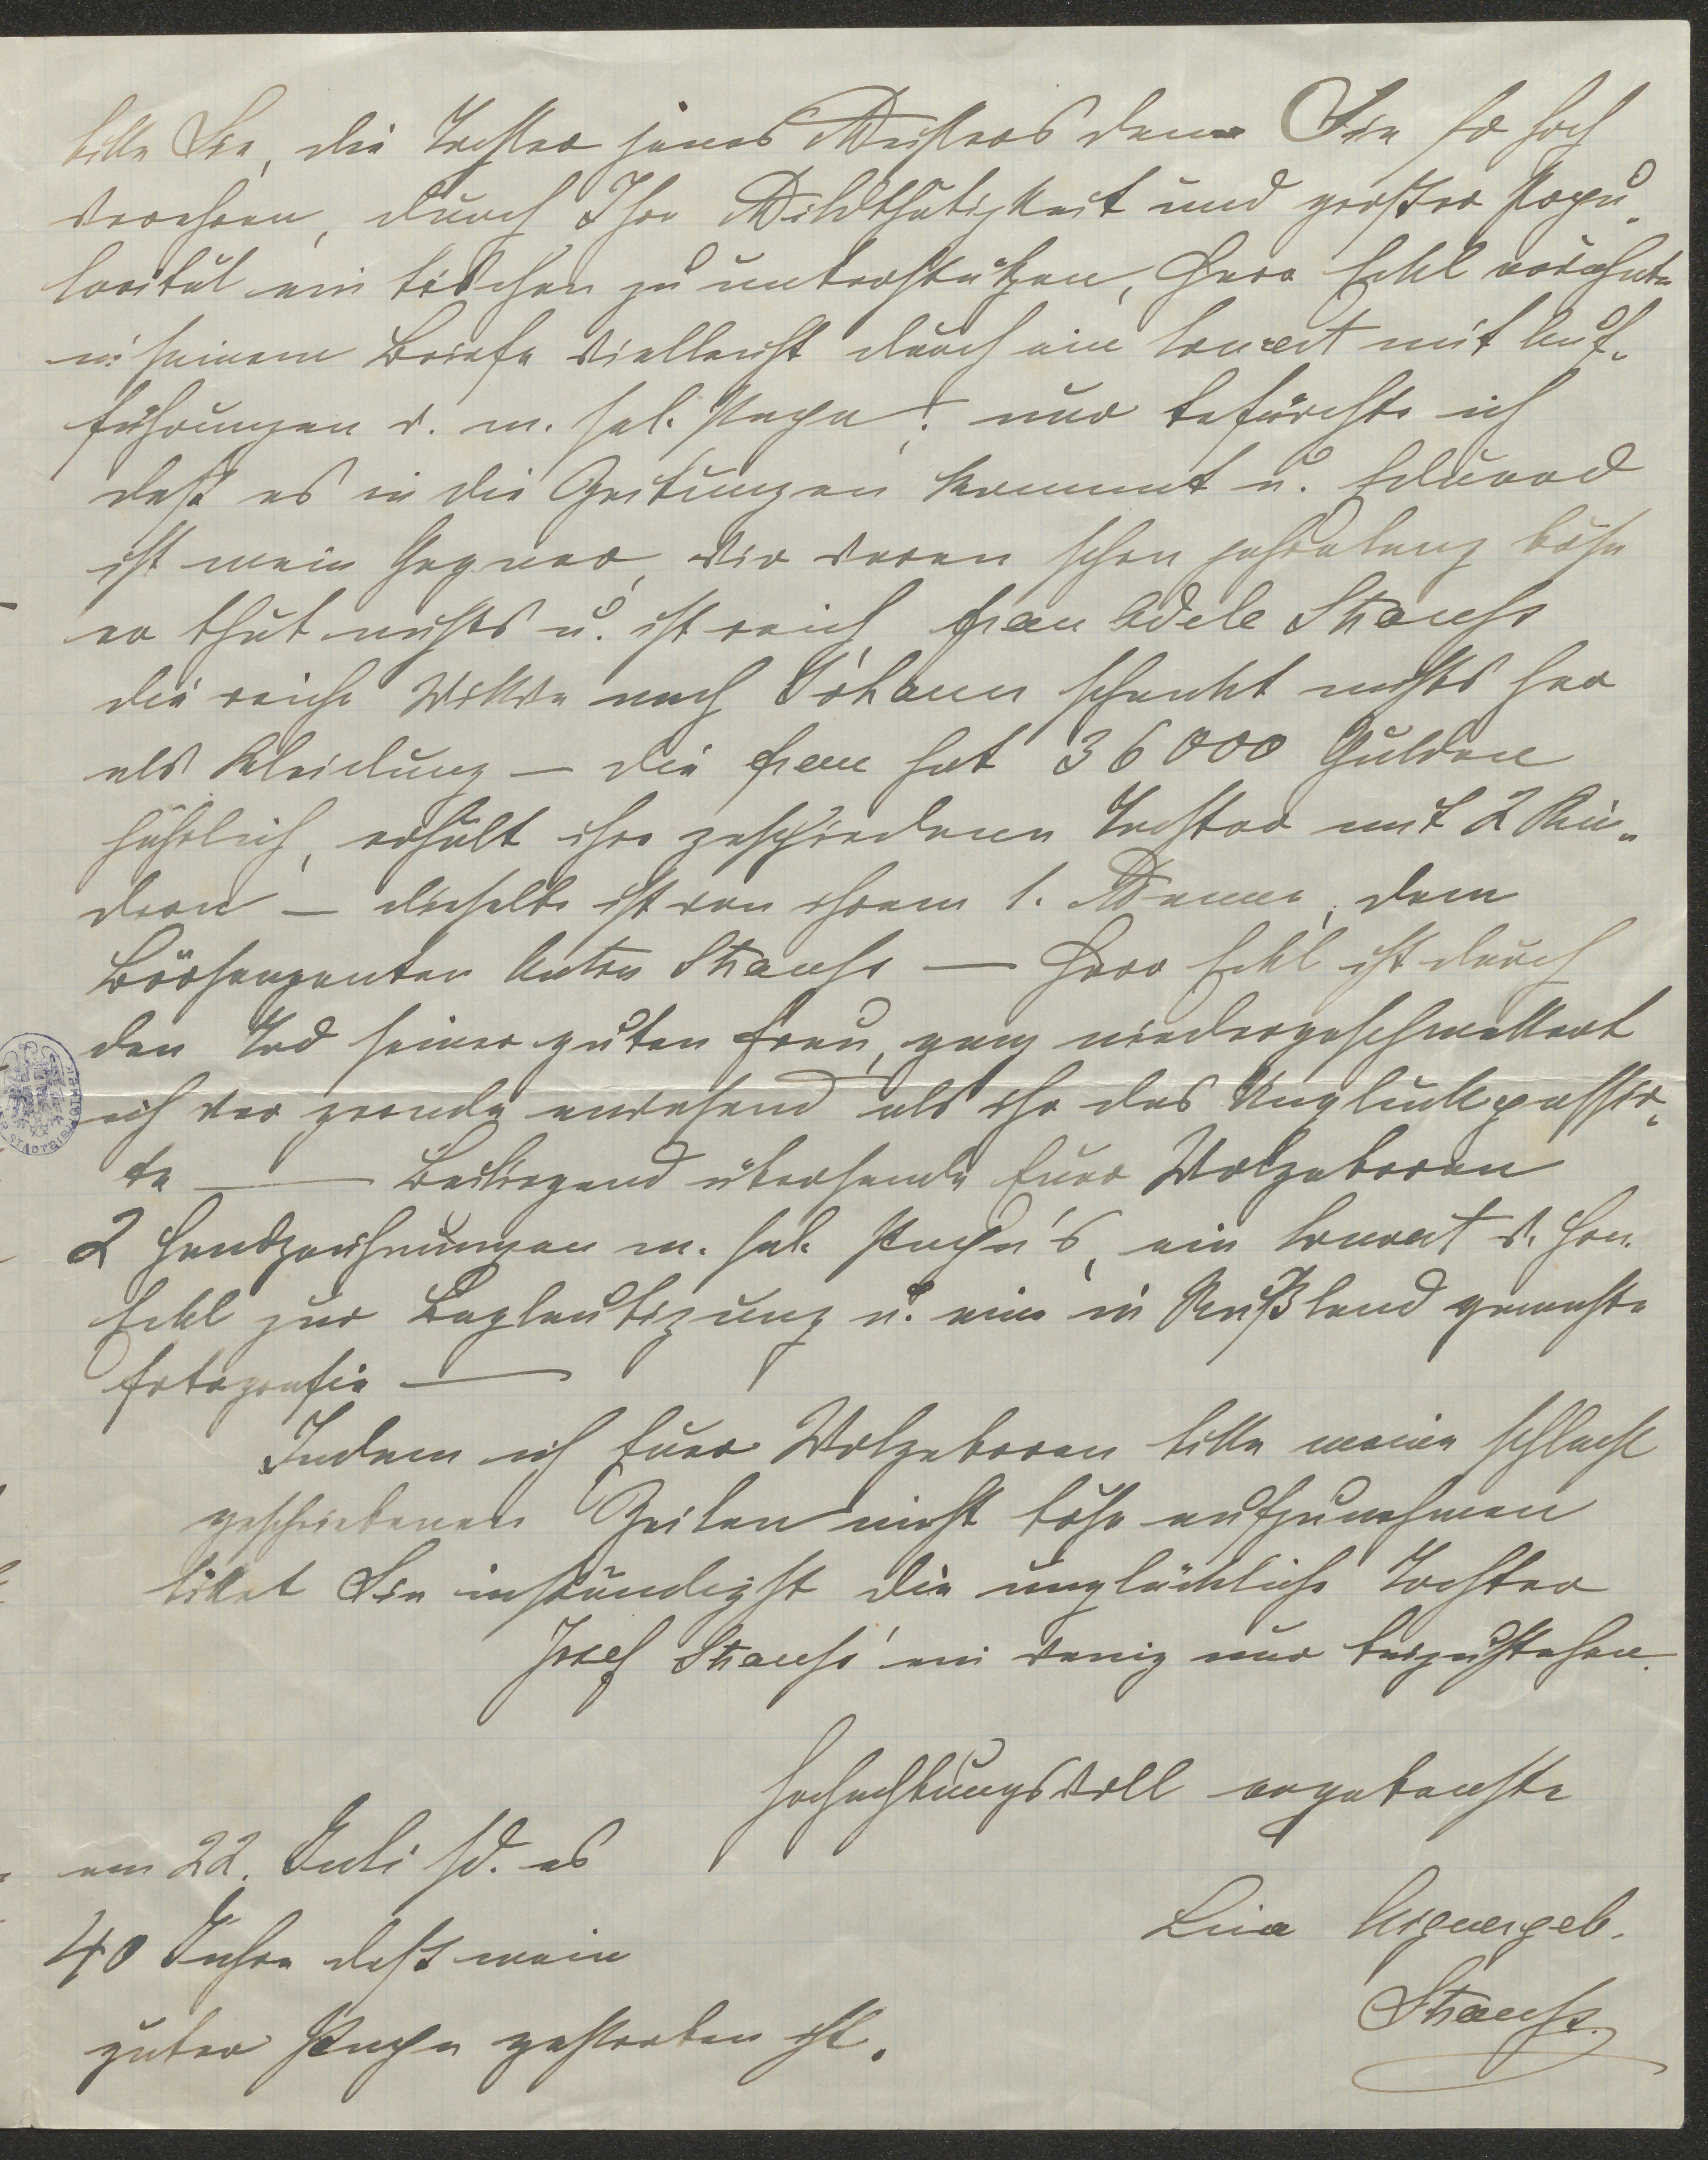 bitte Sie, die Tochter jenes Meisters dem Sie so hoch
verehren, durch Ihre Mildthätigkeit und großer Popu„
larität ein bischen zu unterstützen, Herr Eckl erwähnte
in seinem Briefe vielleicht durch ein Concert mit Auf„
führungen v. m. sel. Papa! nur befürchte ich
daß es in die Zeitungen kommt u. Eduard
ist mein Gegner, wir waren schon jahrelang böse
er thut nichts u. ist reich, Frau Adele Strauss
die reiche Wittwe nach Johann schenkt nichts her
als Kleidung – die Frau hat 36000 Gulden
jährlich, erhält ihre geschiedenen Tochter mit 2 Kin„
dern – dieselbe ist von ihrem 1. Manne, dem
Börsenagenten Anton Strauss – Herr Eckl ist durch
den Tod seiner guten Frau, ganz niedergeschmettert
ich war gerade anwesend als ihr das Unglück passir„
te – Beiliegend übersende Euer Wolgeboren
2 Handzeichnungen m. sel. Papa's, ein Couvert v. Hrn.
Eckl zur Beglaubigung u. eine in Rußland gemachte
Fotografie –
Indem ich Euer Wolgeboren bitte meine schlecht
geschriebenen Zeilen nicht böse aufzunehmen
bittet Sie inständigst die unglückliche Tochter
Josef Strauss' ein wenig nur beizustehen.
Hochachtungsvoll ergebenste
am 22. Juli sd. es
40 Jahre daß mein
guter Papa gestorben ist.
Lina Aigner geb.
Strauss.